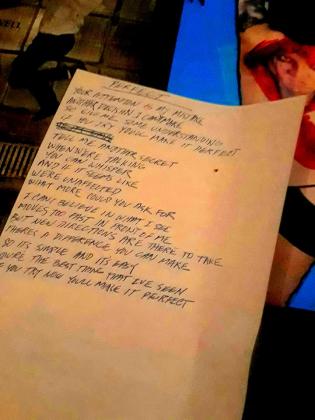 WELL
PERFECT
YOUR ATTENTION IS MY MISTAKE
ANOTHER DECISION I CAN'T MAKE
SO GIVE ME SOME UNDERSTANDING
IF YOU TRY YOU'LL MAKE IT PERFECT
TELL ME ANOTHER SECRET
WHEN WE'RE TALKING
YOU CAN WHISPER
AND IF IT SEEMS LIKE
WE'RE UNAFFECTED
WHAT MORE COULD YOU ASK FOR
I CAN'T BELIEVE IN WHAT I SEE
MOVES TOO FAST IN FRONT OF ME
BUT NEW DIRECTIONS ARE THERE TO TAKE
THERES A DIFFERENCE YOU CAN MAKE
SO ITS SIMPLE AND ITS EASY
YOU'RE THE BEST THING THAT I'VE SEEN
IF YOU TRY NOW YOU'LL MAKE IT PERFECT